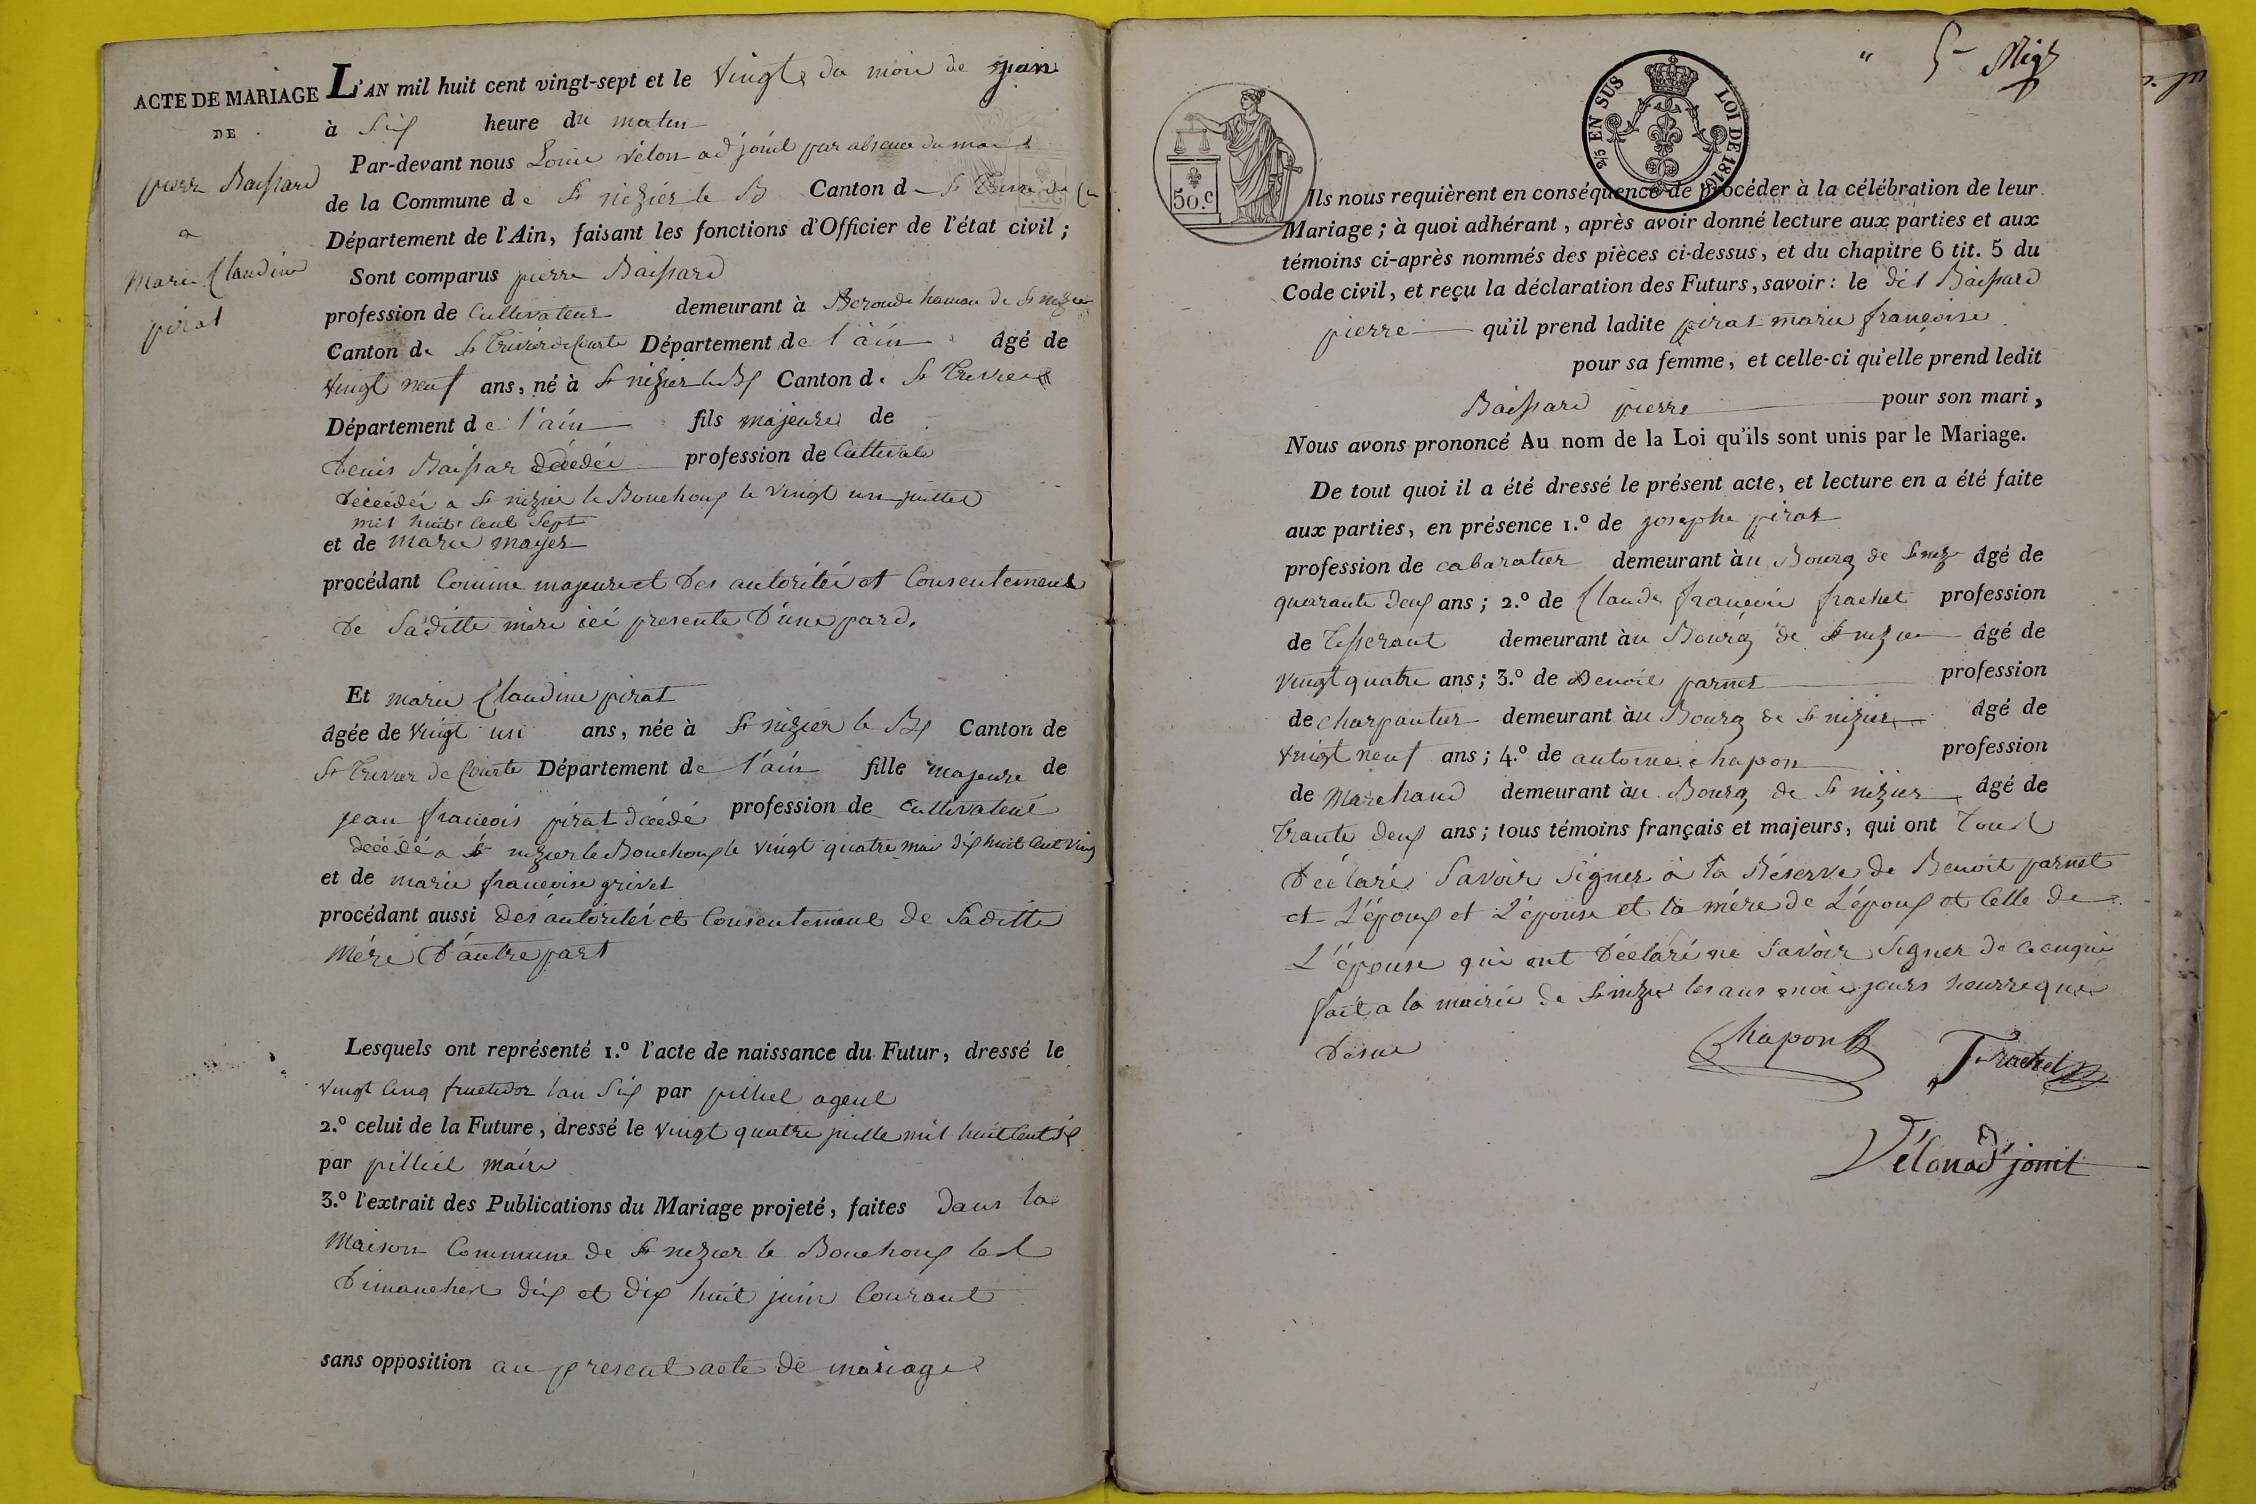 ACTE DE MARIAGE
DE
pierre Baissard
a
Marie Claudine
pirat
L'AN mil huit cent vingt-sept et le vingt du mois de juin
à Six heure du matin
Par-devant nous Louis vélon adjoint par absence du maire
de la Commune de St nizier le B Canton de St Trivier de C
Département de l'Ain, faisant les fonctions d'Officier de l'état civil ;
Sont comparus pierre Baissard
profession de Cultivateur demeurant à hameau de St nizier
Canton de St Trivier de Courte Département de l'ain âgé de
vingt neuf ans, né à St nizier le Bx Canton de St Trivier
Département de l'ain fils majeure de
Denis Baissar décédé profession de Cultivate
décédé a St nizier le Bouchoux le vingt un juillet
mil huit cent Sept
et de marie mayer
procédant Comme majeure et des autorité et Consentement
de Saditte mère ici presente d'une pard.
Et marie Claudine pirat
âgée de vingt un ans, née à St nizier le Bx Canton de
St Trivier de Courte Département de l'ain fille majeure de
jean francois pirat décédé profession de Cultivateur
décédé a St nizier le Bouchoux le vingt quatre mai dix huit Cent ving
et de marie francoise grivet
procédant aussi des autorité et Consentement de Saditte
Mére d'autre part
Lesquels ont représenté 1.º l'acte de naissance du Futur, dressé le
vingt Cinq fructidor l'an Six par pilliel agent
2.º celui de la Future, dressé le vingt quatre juille mil huit Cent Six
par pilliel maire
3.º l'extrait des Publications du Mariage projeté, faites dans la
Maison Commune de St nizier le Bouchoux les
Dimanches dix et dix huit juin Courant
sans opposition au present acte de mariage
50.C
2/5 EN SUS LOI DE 1816
5
Ils nous requièrent en conséquence de procéder à la célébration de leur
Mariage ; à quoi adhérant, après avoir donné lecture aux parties et aux
témoins ci-après nommés des pièces ci-dessus, et du chapitre 6 tit. 5 du
Code civil, et reçu la déclaration des Futurs, savoir : le dit Baissard
pierre qu'il prend ladite pirat marie françoise
pour sa femme, et celle-ci qu'elle prend ledit
Baissard pierre pour son mari,
Nous avons prononcé Au nom de la Loi qu'ils sont unis par le Mariage.
De tout quoi il a été dressé le présent acte, et lecture en a été faite
aux parties, en présence 1.º de josephe pirat
profession de cabaratier demeurant àu Bourg de St niz âgé de
quarante deux ans ; 2.º de Claude francois frachet profession
de Tisserant demeurant àu Bourg de St nizier âgé de
vingt quatre ans ; 3.º de Benoit parnet profession
de charpantier demeurant àu Bourg de St nizier âgé de
vingt neuf ans ; 4.º de antoine chapon profession
de Marchand demeurant àu Bourg de St nizier âgé de
Trante deux ans ; tous témoins français et majeurs, qui ont Tous
déclaré Savoir Signer à la Réserve de Benoit parnet
et L'époux et L'épouse et la mére de L'époux et Celle de
L'épouse qui ont déclaré ne Savoir Signer de ce enquis
fait a la mairie de St nizier les ans mois jours heurre que
desue
Chapon
Frachet
Vélon adjoint